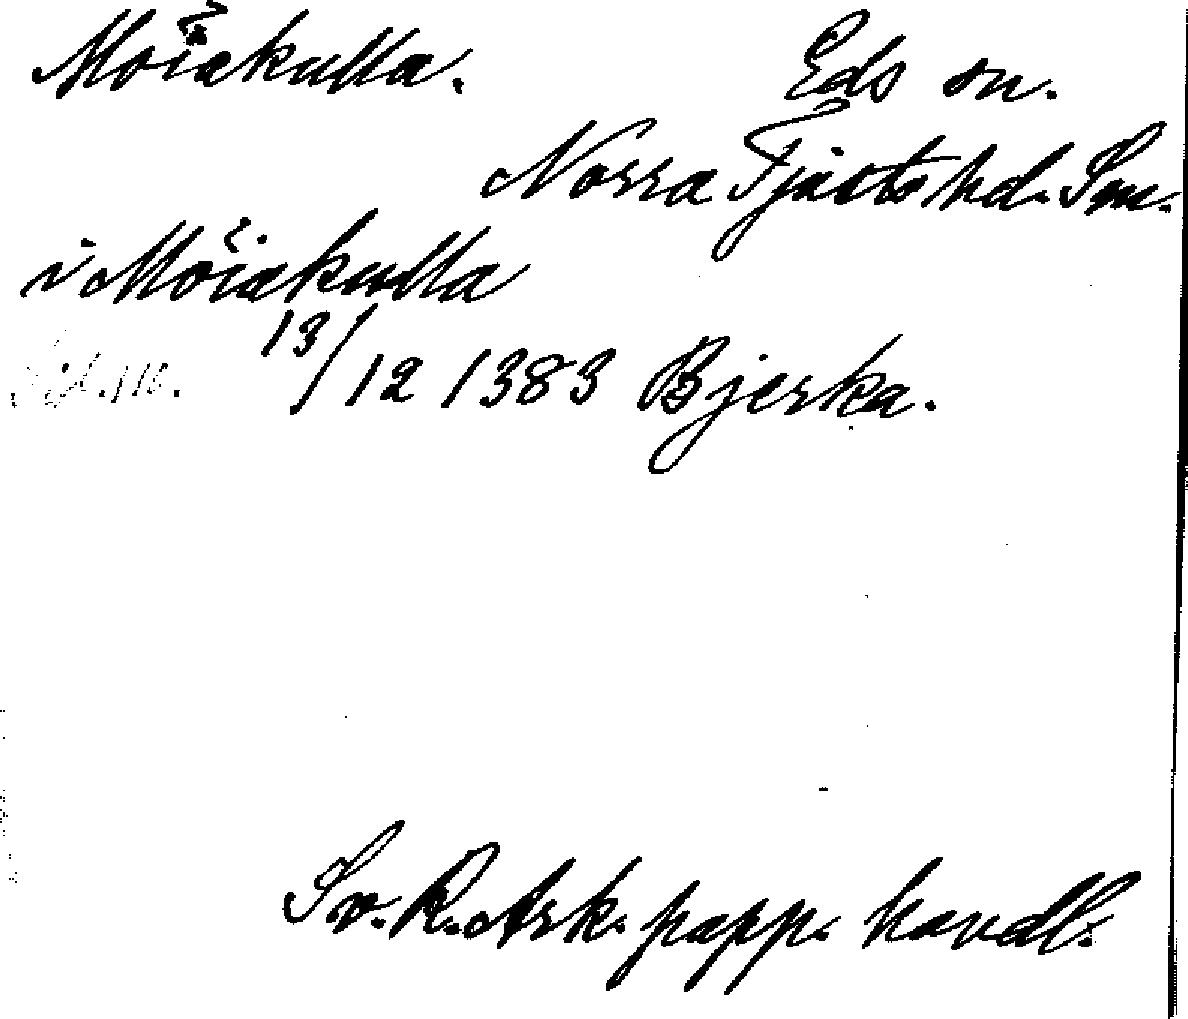 Möiakulla. Eds sn.
Norra Tjusts hd. Sm.
i Möiakulla
13/12 1383 Bjerka.
Sv. R. Ark. papp. handl.